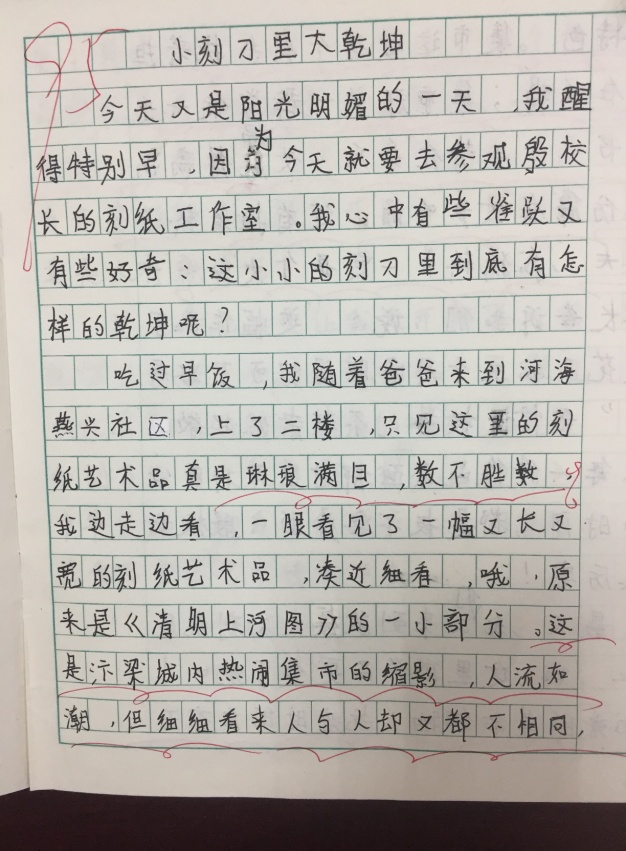 95
小刻刀里大乾坤
今天又是阳光明媚的一天，我醒
得特别早，因为今天就要去参观殷校
长的刻纸工作室。我心中有些雀跃又
有些好奇：这小小的刻刀里到底有怎
样的乾坤呢？
吃过早饭，我随着爸爸来到河海
燕兴社区，上了二楼，只见这里的刻
纸艺术品真是琳琅满目，数不胜数，
我边走边看，一眼看见了一幅又长又
宽的刻纸艺术品，凑近细看，哦，原
来是《清明上河图》的一小部分。这
是汴梁城内热闹集市的缩影，人流如
潮，但细细看来人与人却又都不相同，